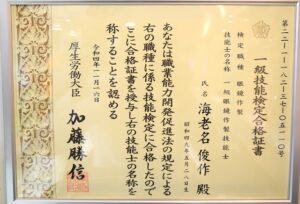 第二二-一-一八二-三七-〇五一〇号
一級技能検定合格証書
検定職種 眼鏡作製
技能士の名称 一級眼鏡作製技能士
氏名 海老名 俊作 殿
昭和四九年五月二八日生
あなたは職業能力開発促進法の規定による
右の職種に係る技能検定に合格したので
ここに合格証書を授与し右の技能士の名称を
称することを認める
令和四年一一月一六日
厚生労働大臣 加藤勝信